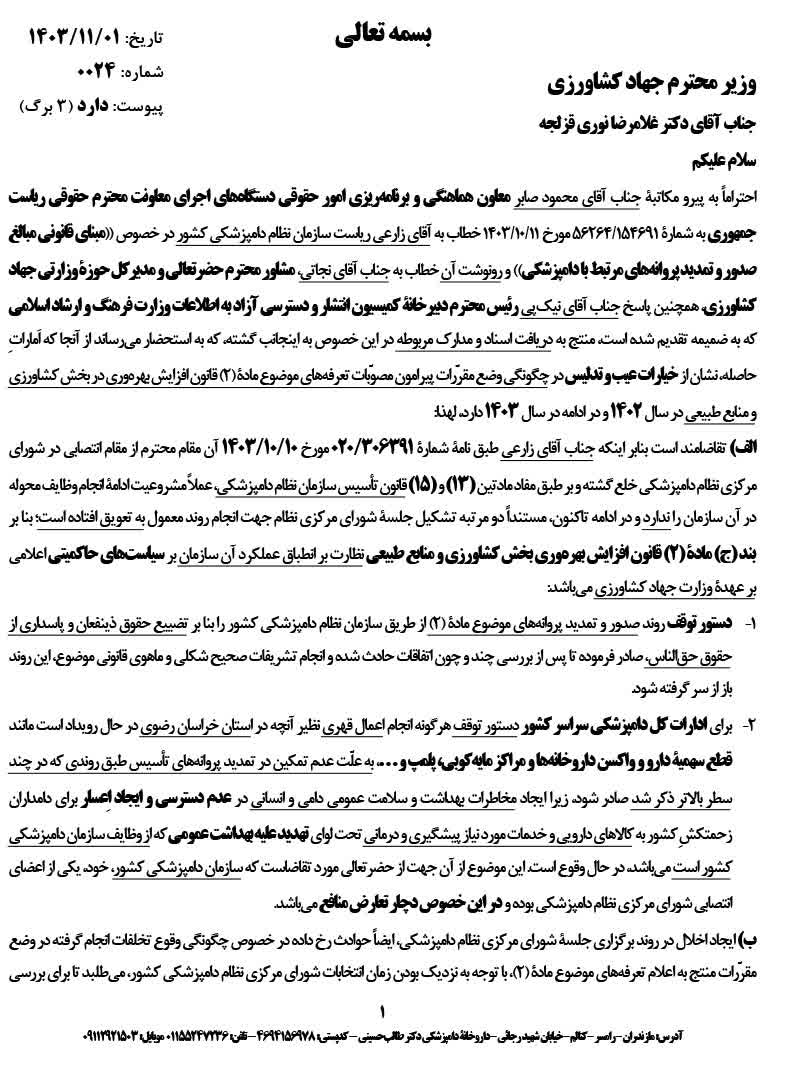 بسمه تعالی
تاریخ: ۱۴۰۳/۱۱/۰۱
شماره: ۰۰۲۴
پیوست: دارد (۳ برگ)
وزیر محترم جهاد کشاورزی
جناب آقای دکتر غلامرضا نوری قزلجه
سلام علیکم
احتراماً به پیرو مکاتبهٔ جناب آقای محمود صابر معاون هماهنگی و برنامه‌ریزی امور حقوقی دستگاه‌های اجرای معاونت محترم حقوقی ریاست
جمهوری به شمارهٔ ۵۶۲۶۴/۱۵۴۶۹۱ مورخ ۱۴۰۳/۱۰/۱۱ خطاب به آقای زارعی ریاست سازمان نظام دامپزشکی کشور در خصوص ((مبنای قانونی مبالغ
صدور و تمدید پروانه‌های مرتبط با دامپزشکی)) و رونوشت آن خطاب به جناب آقای نجاتی، مشاور محترم حضرتعالی و مدیر کل حوزهٔ وزارتی جهاد
کشاورزی، همچنین پاسخ جناب آقای نیک‌پی رئیس محترم دبیرخانهٔ کمیسیون انتشار و دسترسی آزاد به اطلاعات وزارت فرهنگ و ارشاد اسلامی
که به ضمیمه تقدیم شده است، منتج به دریافت اسناد و مدارک مربوطه در این خصوص به اینجانب گشته، که به استحضار می‌رساند از آنجا که اَماراتِ
حاصله، نشان از خیارات عیب و تدلیس در چگونگی وضع مقرّرات پیرامون مصوّبات تعرفه‌های موضوع مادهٔ (۲) قانون افزایش بهره‌وری در بخش کشاورزی
و منابع طبیعی در سال ۱۴۰۲ و در ادامه در سال ۱۴۰۳ دارد، لهذا:
الف) تقاضامند است بنابر اینکه جناب آقای زارعی طبق نامهٔ شمارهٔ ۰۲۰/۳۰۶۳۹۱ مورخ ۱۴۰۳/۱۰/۱۰ آن مقام محترم از مقام انتصابی در شورای
مرکزی نظام دامپزشکی خلع گشته و بر طبق مفاد مادتین (۱۳) و (۱۵) قانون تأسیس سازمان نظام دامپزشکی، عملاً مشروعیت ادامهٔ انجام وظایف محوله
در آن سازمان را ندارد و در ادامه تاکنون، مستنداً دو مرتبه تشکیل جلسهٔ شورای مرکزی نظام جهت انجام روند معمول به تعویق افتاده است؛ بنا بر
بند (ج) مادهٔ (۲) قانون افزایش بهره‌وری بخش کشاورزی و منابع طبیعی نظارت بر انطباق عملکرد آن سازمان بر سیاست‌های حاکمیتی اعلامی
بر عهدهٔ وزارت جهاد کشاورزی می‌باشد:
۱- دستور توقف روند صدور و تمدید پروانه‌های موضوع مادهٔ (۲) از طریق سازمان نظام دامپزشکی کشور را بنا بر تضییع حقوق ذینفعان و پاسداری از
حقوق حق‌الناس، صادر فرموده تا پس از بررسی چند و چون اتفاقات حادث شده و انجام تشریفات صحیح شکلی و ماهوی قانونی موضوع، این روند
باز از سر گرفته شود.
۲- برای ادارات کل دامپزشکی سراسر کشور دستور توقف هرگونه انجام اعمال قهری نظیر آنچه در استان خراسان رضوی در حال رویداد است مانند
قطع سهمیهٔ دارو و واکسن داروخانه‌ها و مراکز مایه‌کوبی، پلمپ و ...، به علّت عدم تمکین در تمدید پروانه‌های تأسیس طبق روندی که در چند
سطر بالاتر ذکر شد صادر شود، زیرا ایجاد مخاطرات بهداشت و سلامت عمومی دامی و انسانی در عدم دسترسی و ایجاد اِعسار برای دامداران
زحمتکشِ کشور به کالاهای دارویی و خدمات مورد نیاز پیشگیری و درمانی تحت لوای تهدید علیه بهداشت عمومی که از وظایف سازمان دامپزشکی
کشور است می‌باشد، در حال وقوع است. این موضوع از آن جهت از حضرتعالی مورد تقاضاست که سازمان دامپزشکی کشور، خود، یکی از اعضای
انتصابی شورای مرکزی نظام دامپزشکی بوده و در این خصوص دچار تعارض منافع می‌باشد.
ب) ایجاد اخلال در روند برگزاری جلسهٔ شورای مرکزی نظام دامپزشکی، ایضاً حوادث رخ داده در خصوص چگونگی وقوع تخلفات انجام گرفته در وضع
مقرّرات منتج به اعلام تعرفه‌های موضوع مادهٔ (۲)، با توجه به نزدیک بودن زمان انتخابات شورای مرکزی نظام دامپزشکی کشور، می‌طلبد تا برای بررسی
۱
آدرس: مازندران – رامسر – کتالم – خیابان شهید رجائی – داروخانهٔ دامپزشکی دکتر طالب‌حسینی – کدپستی: ۴۶۹۴۱۵۶۹۷۸ – تلفن: ۰۱۱۵۵۲۴۷۲۳۶ موبایل: ۰۹۱۱۲۹۲۱۵۰۳